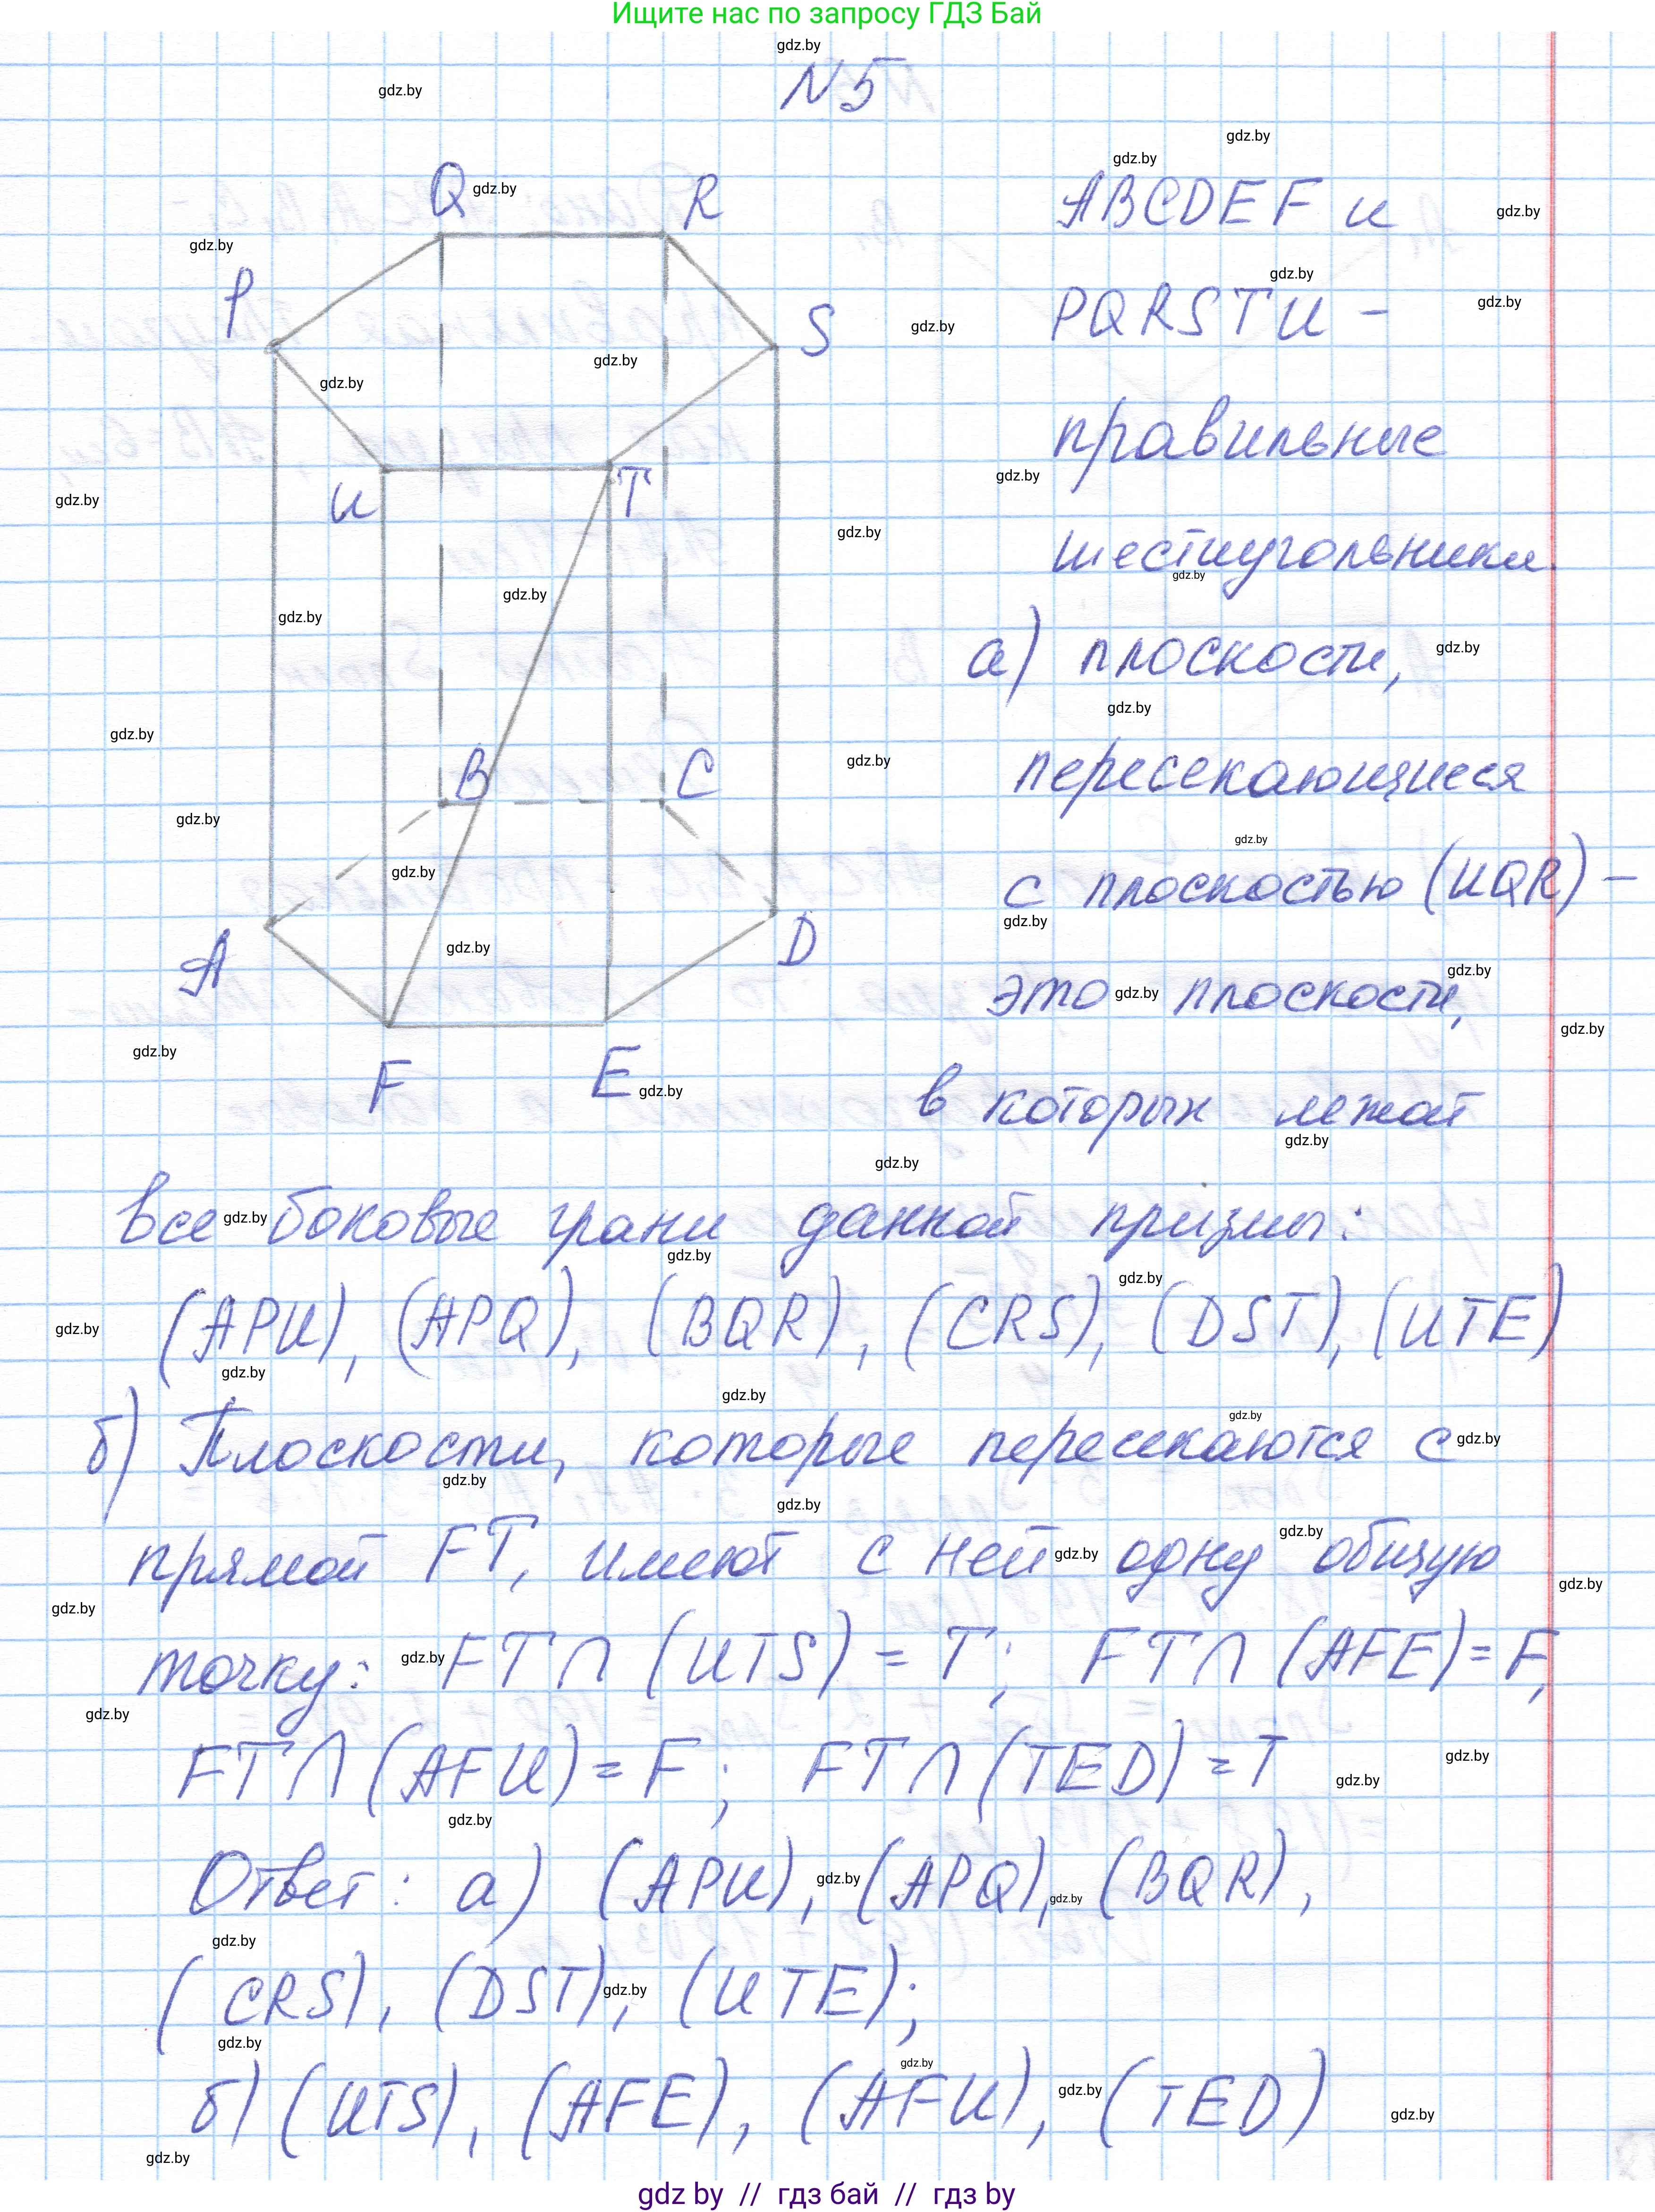 Ищите нас по запросу ГДЗ Бай
N5
Q
R
P
S
U
T
B
C
A
D
F
E
ABCDEF и
PQRSTU –
правильные
шестиугольники.
а) плоскости,
пересекающиеся
с плоскостью (UQR) –
это плоскости,
в которых лежат
все боковые грани данной призмы:
(APU), (APQ), (BQR), (CRS), (DST), (UTE)
б) Плоскости, которые пересекаются с
прямой FT, имеют с ней одну общую
точку: FT∩(UTS) = T; FT∩(AFE) = F,
FT∩(AFU) = F; FT∩(TED) = T
Ответ: а) (APU), (APQ), (BQR),
(CRS), (DST), (UTE);
б) (UTS), (AFE), (AFU), (TED)
gdz by // гдз бай // гдз by